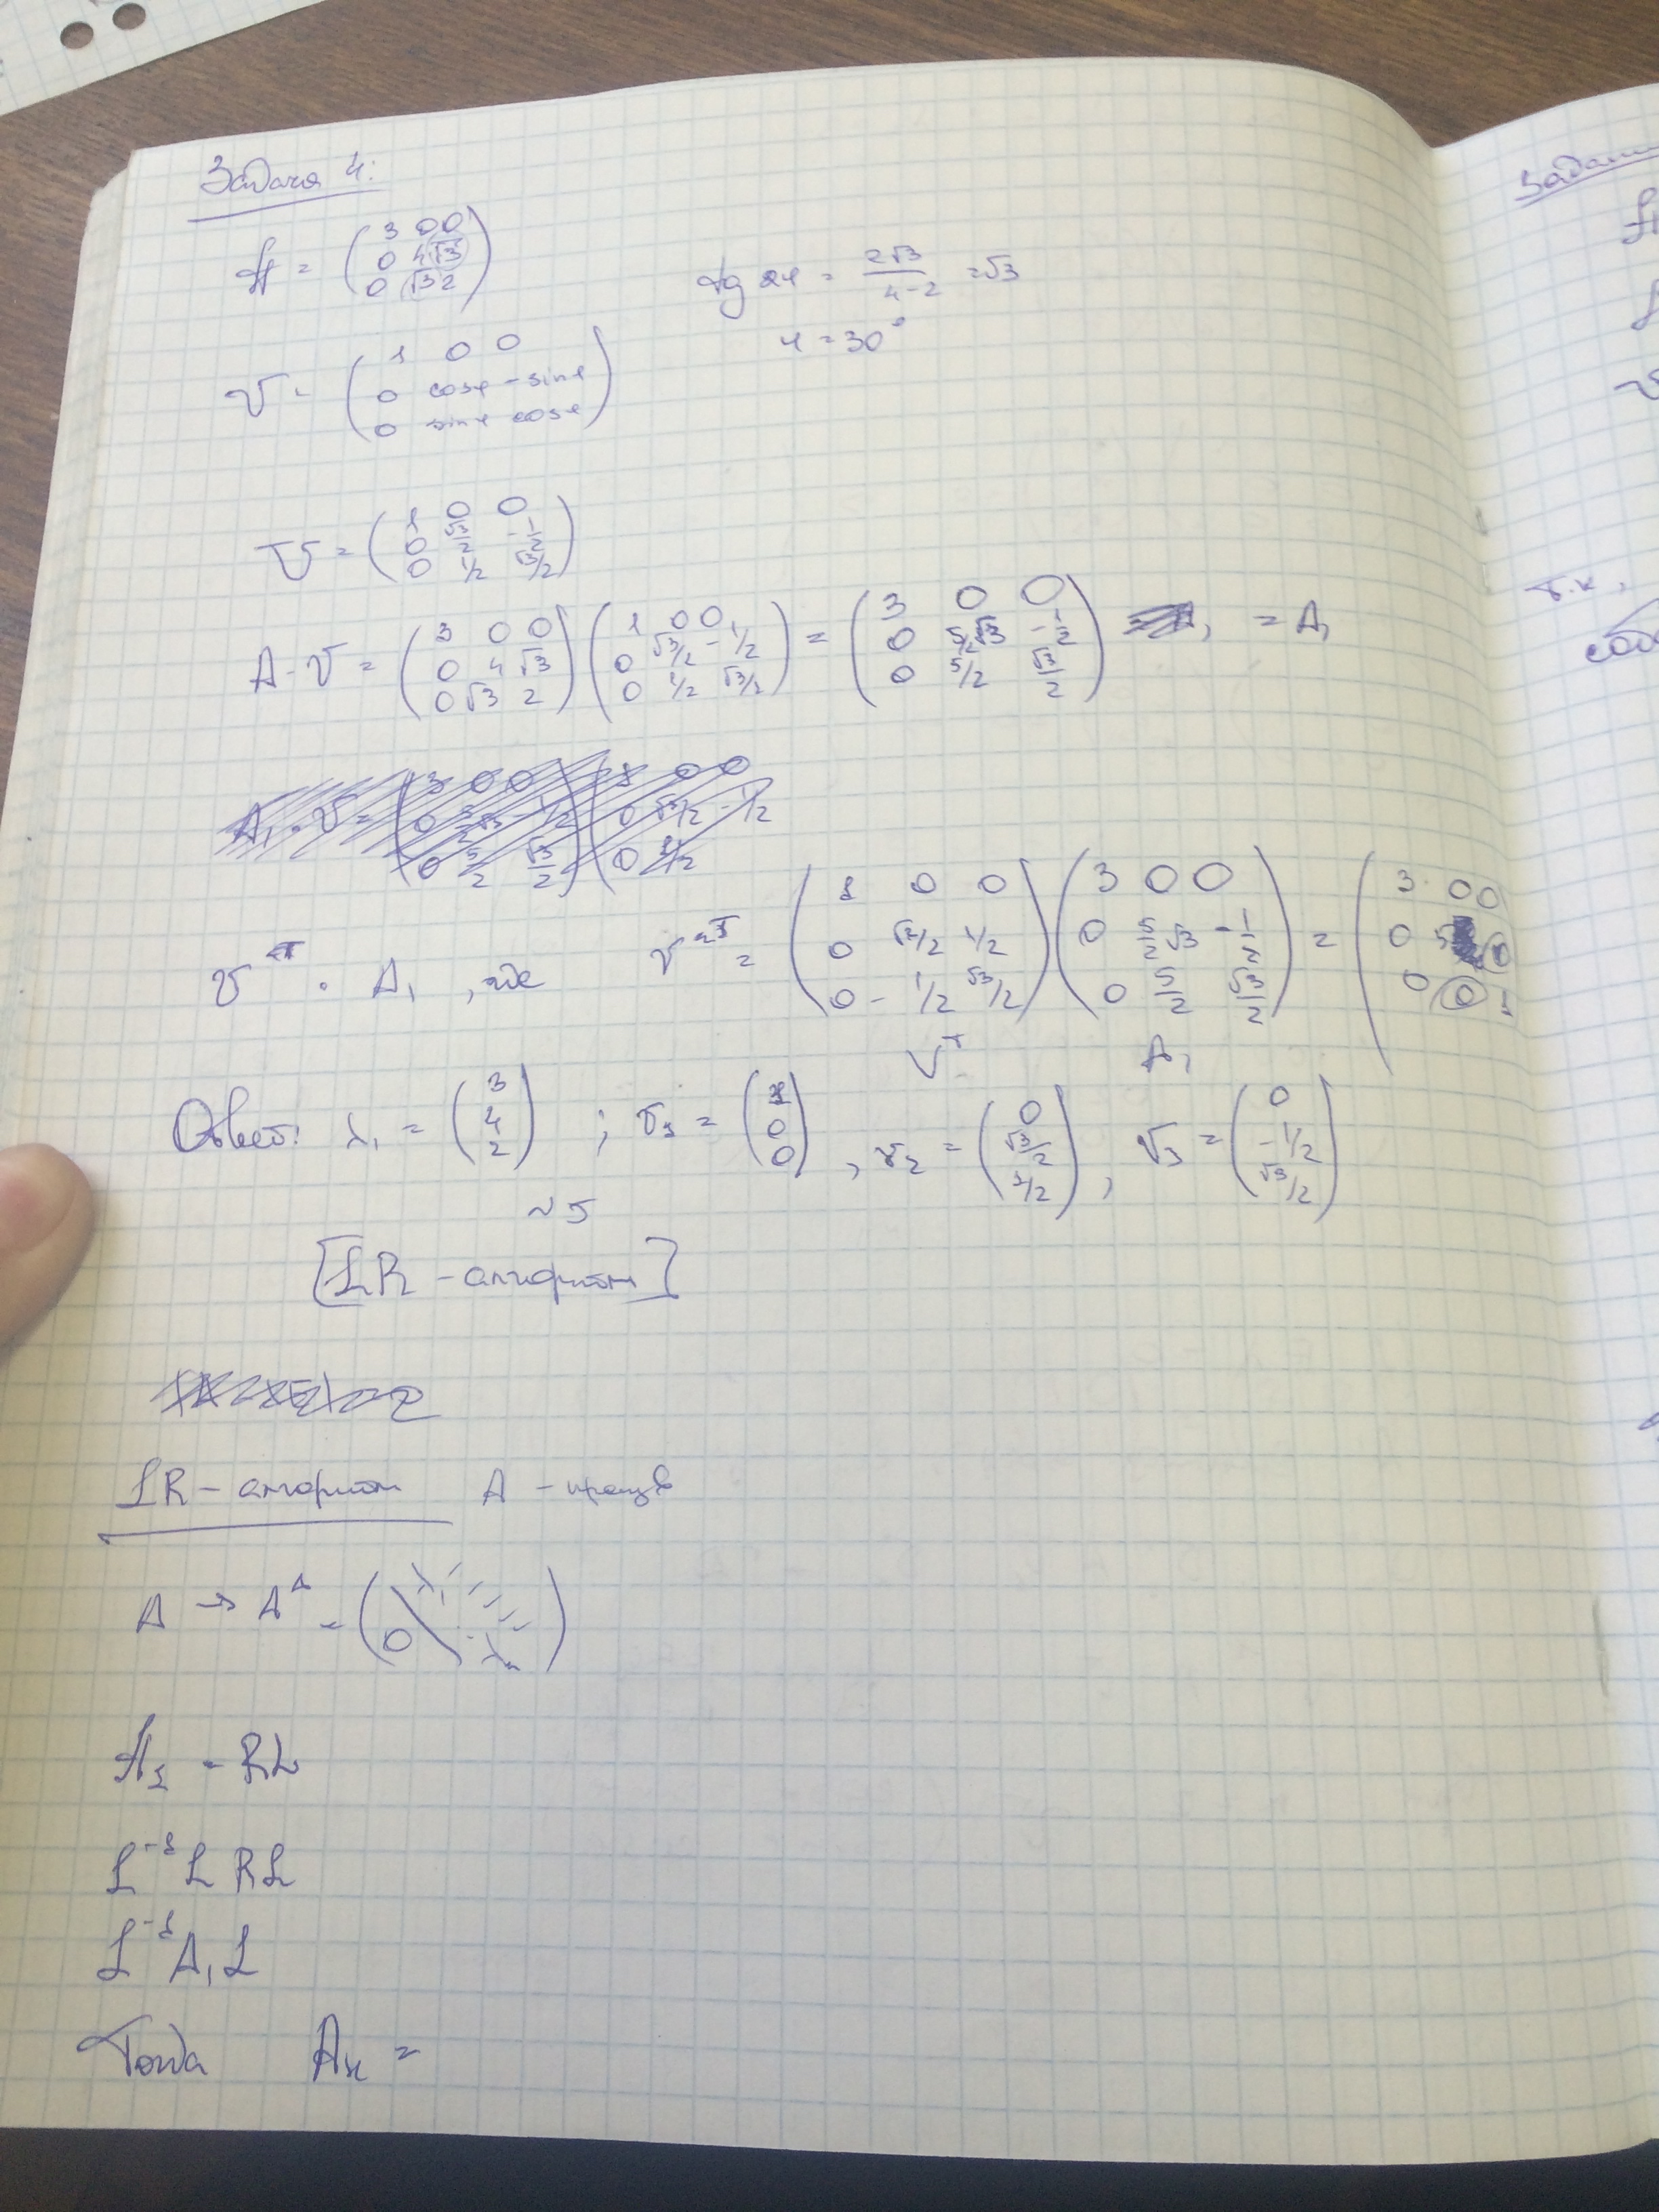 Задача 4:
A = (3 0 0; 0 4 √3; 0 √3 2)
tg 2φ = 2√3/(4-2) = √3
φ = 30°
V = (1 0 0; 0 cosφ -sinφ; 0 sinφ cosφ)
V = (1 0 0; 0 √3/2 -1/2; 0 1/2 √3/2)
A·V = (3 0 0; 0 4 √3; 0 √3 2) (1 0 0; 0 √3/2 -1/2; 0 1/2 √3/2) = (3 0 0; 0 5/2√3 -1/2; 0 5/2 √3/2) = A₁
V^T · A₁, где V^T = (1 0 0; 0 √3/2 1/2; 0 -1/2 √3/2) (3 0 0; 0 5/2√3 -1/2; 0 5/2 √3/2) = (3 0 0; 0 5 0; 0 0 1
V^T A₁
Ответ: λ₁ = (3; 4; 2) ; V₁ = (1; 0; 0) , V₂ = (0; √3/2; 1/2) , V₃ = (0; -1/2; √3/2)
~5
[LR-алгоритм]
LR-алгоритм A -
A → A^Δ = (λ₁ 0 λₙ)
A₂ = RL
L⁻¹L RL
L⁻¹A₁L
Тогда Aₖ =
т.к.